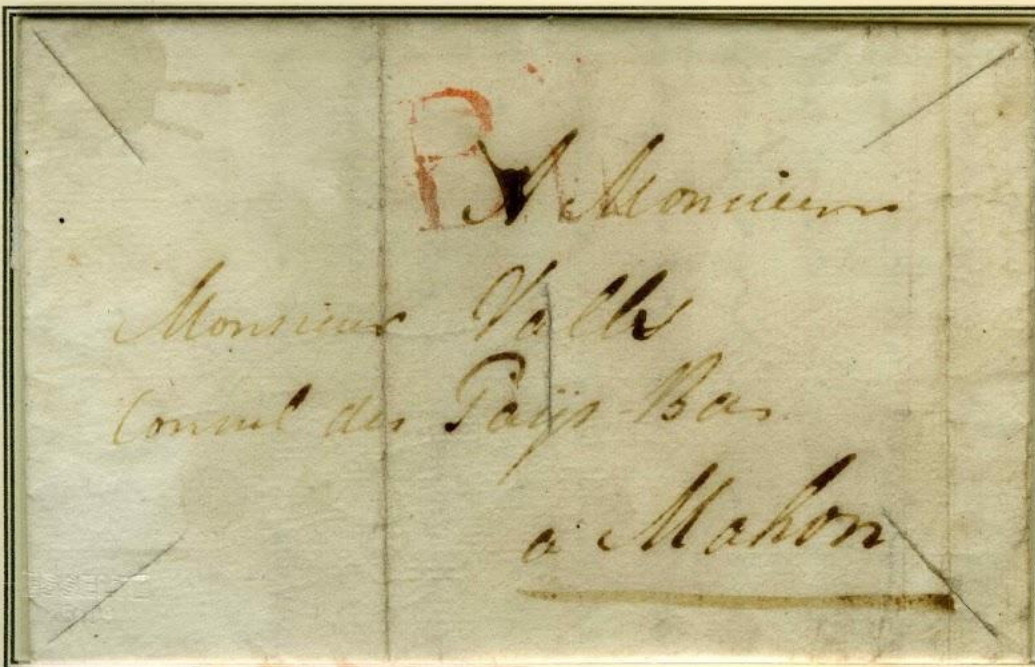 A Monsieur
Monsieur Valls
Consul des Paÿs-Bas
a Mahon